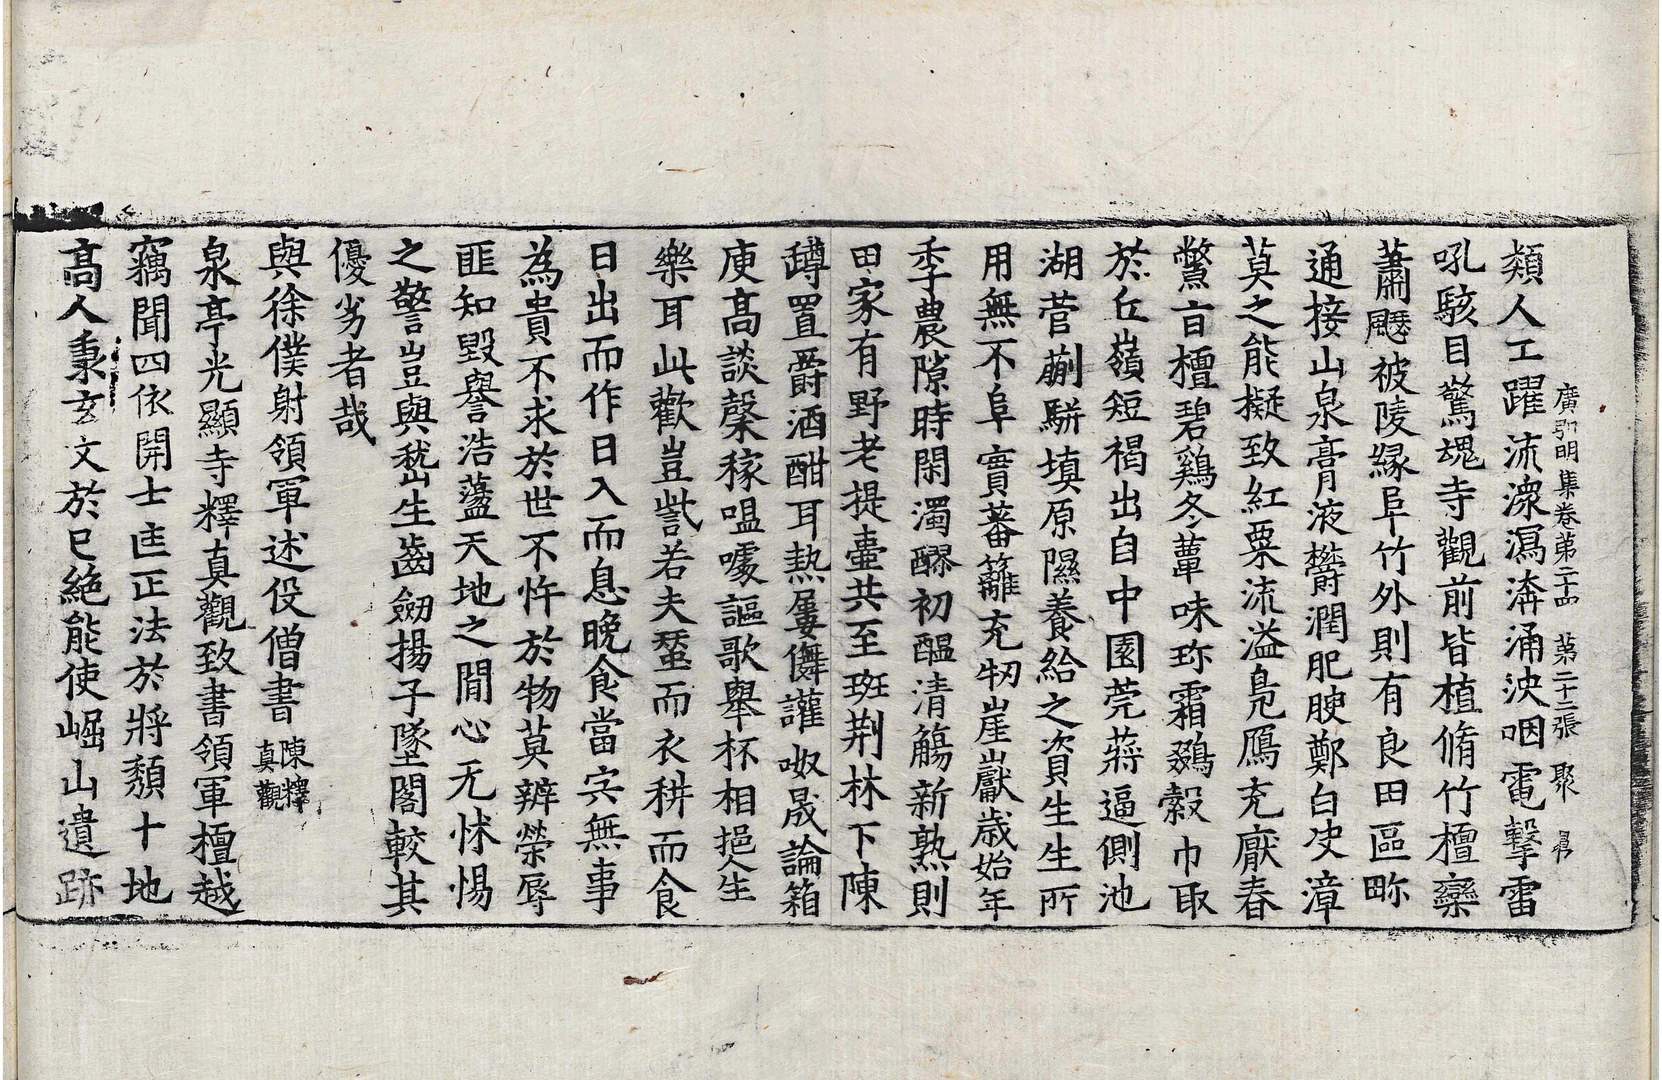 廣弘明集卷第二十四　第二十二張　聚
類人工躍流潨瀉渀涌泱咽電擊雷
吼駭目驚魂寺觀前皆植脩竹檀欒
蕭飋被陵緣阜竹外則有良田區畛
通接山泉膏液鬱潤肥腴鄭白決漳
莫之能擬致紅粟流溢鳧鴈充厭春
鷩旨檀碧雞冬蕈味珎霜鵽縠巾取
於丘嶺短褐出自中園莞蔣逼側池
湖菅蒯駢填原隰養給之資生生所
用無不阜實蕃籬充牣崖巘歲始年
季農隙時閑濁醪初醞清觴新熟則
田家有野老提壷共至班荆林下陳
罇置爵酒酣耳熱屢儛讙呶晟論箱
庾髙談糓稼嗢噱謳歌舉杯相挹人生
樂耳此歡豈訾若夫蠶而衣耕而食
日出而作日入而息晚食當宍無事
為貴不求於世不忤於物莫辨榮辱
匪知毀譽浩蕩天地之閒心无怵惕
之警豈與嵇生齒劒揚子墜閣較其
優劣者哉
與徐僕射領軍述役僧書　陳釋真觀
泉亭光顯寺釋真觀致書領軍檀越
竊聞四依開士匡正法於將頽十地
髙人秉玄文於已絶能使崛山遺跡